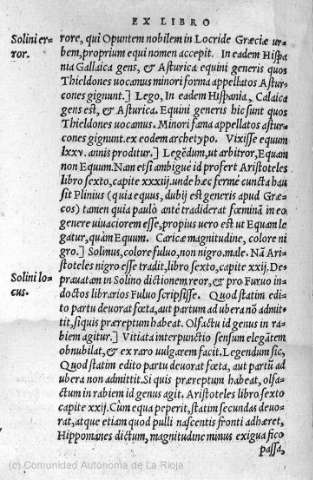 EX LIBRO
Solini er-
ror.
rore, qui Opuntem nobilem in Locride Græciæ ur-
bem, proprium equi nomen accepit. In eadem Hispa
nia Gallaica gens, & Asturica equini generis quos
Thieldones uocamus minori forma appellatos Astur
cones gignunt.] Lego, In eadem Hispania, Calaica
gens est, & Asturica. Equini generis hic sunt quos
Thieldones uocamus. Minori fama appellatos astur
cones gignunt. ex eodem archetypo. Vixisse equum
lxxv. annis proditur.] Legēdum, ut arbitror, Equam
non Equum. Nam etsi ambigue id profert Aristoteles
libro sexto, capite xxxij. unde hæc fermè cuncta hau
sit Plinius (quia equus, dubij est generis apud Græ-
cos) tamen quia paulò ante tradiderat fœminā in eo
genere uiuaciorem esse, propius uero est ut Equam le
gatur, quàm Equum. Caricæ magnitudine, colore ni
gro.] Solinus, colore fuluo, non nigro. male. Nā Ari-
stoteles nigro esse tradit, libro sexto, capite xxij. De-
Solini lo-
cus.
prauatam in Solino dictionem reor, & pro Furuo in-
doctos librarios Fuluo scripsisse. Quod statim edi-
to partu deuorat fœta, aut partum ad ubera nō admit-
tit, si quis præreptum habeat. Olfactu id genus in ra-
biem agitur.] Vitiata interpunctio sensum elegātem
obnubilat, & ex raro uulgarem facit. Legendum sic,
Quod statim edito partu deuorat fœta, aut partū ad
ubera non admittit. Si quis præreptum habeat, olfa-
ctum in rabiem id genus agit. Aristoteles libro sexto
capite xxij. Cum equa peperit, statim secundas deuo-
rat, atque etiam quod pulli nascentis fronti adhæret,
Hippomanes dictum, magnitudine minus exigua fico
passa,
(c) Comunidad Autónoma de La Rioja